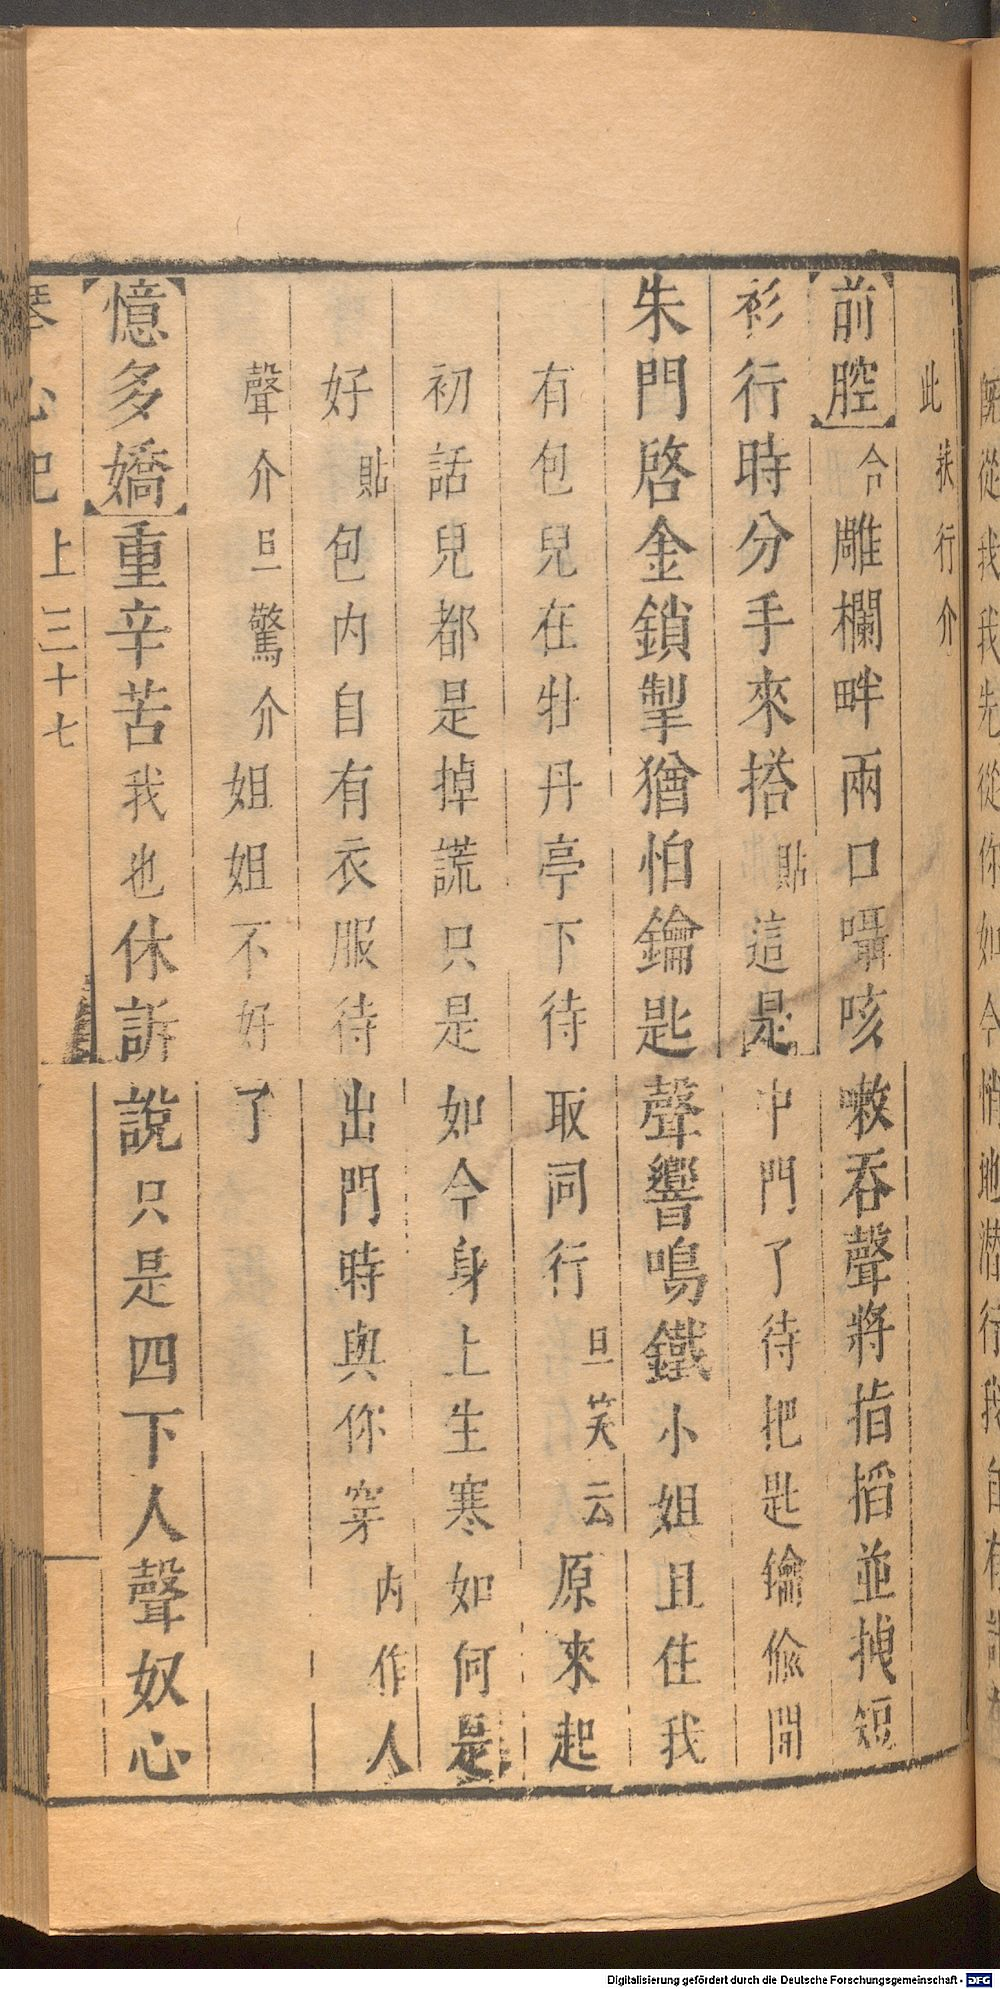 從我我先從你如今悄地潜行我自有
此 扶行介
前腔 合雕欄畔兩口囁咳嗽吞聲將指搯並摸短
衫行時分手來搭 貼 這是中門了待把匙鑰偸開
朱門啓金鎖掣猶怕鑰匙聲響鳴鐵小姐且住我
有包兒在牡丹亭下待取同行 旦笑云 原來起
初話兒都是掉謊只是如今身上生寒如何是
好 貼 包內自有衣服待出門時與你穿 內作人
聲介 旦驚介 姐姐不好了
憶多嬌 重辛苦我也休訴說只是四下人聲奴心
琴心記 上 三十七
Digitalisierung gefördert durch die Deutsche Forschungsgemeinschaft - DFG